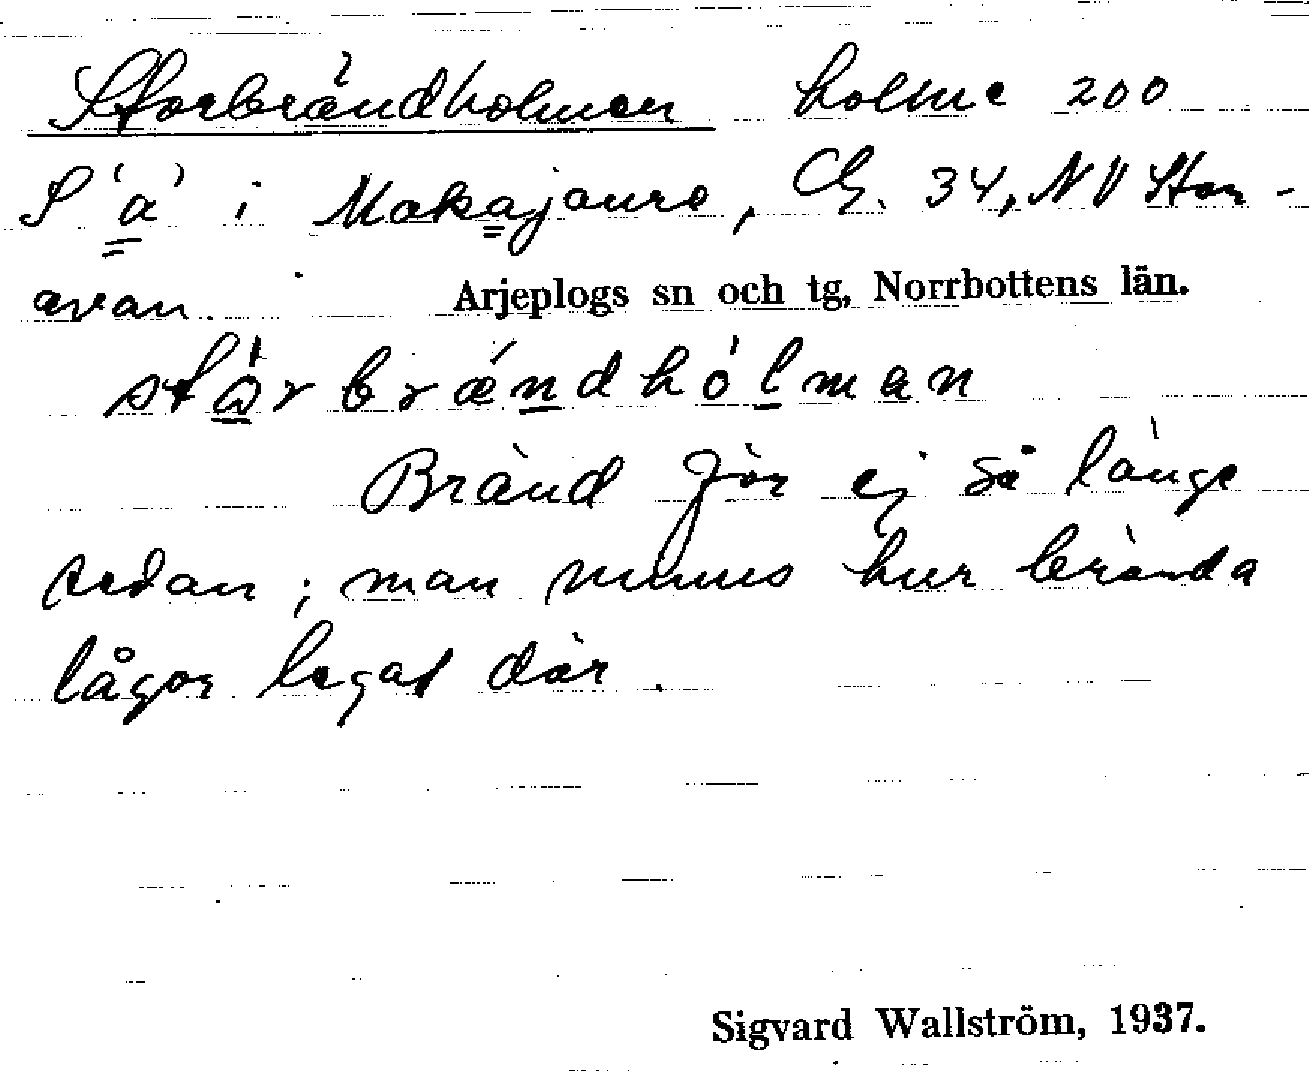 Storbrändholmen holme 200
S 'a' i Makajaure, Ch. 34, NV Stor-
avan. Arjeplogs sn och tg, Norrbottens län.
stòrbrǽndhólman
Bränd för ej så länge
sedan; man minns hur brända
lågor legat där.
Sigvard Wallström, 1937.